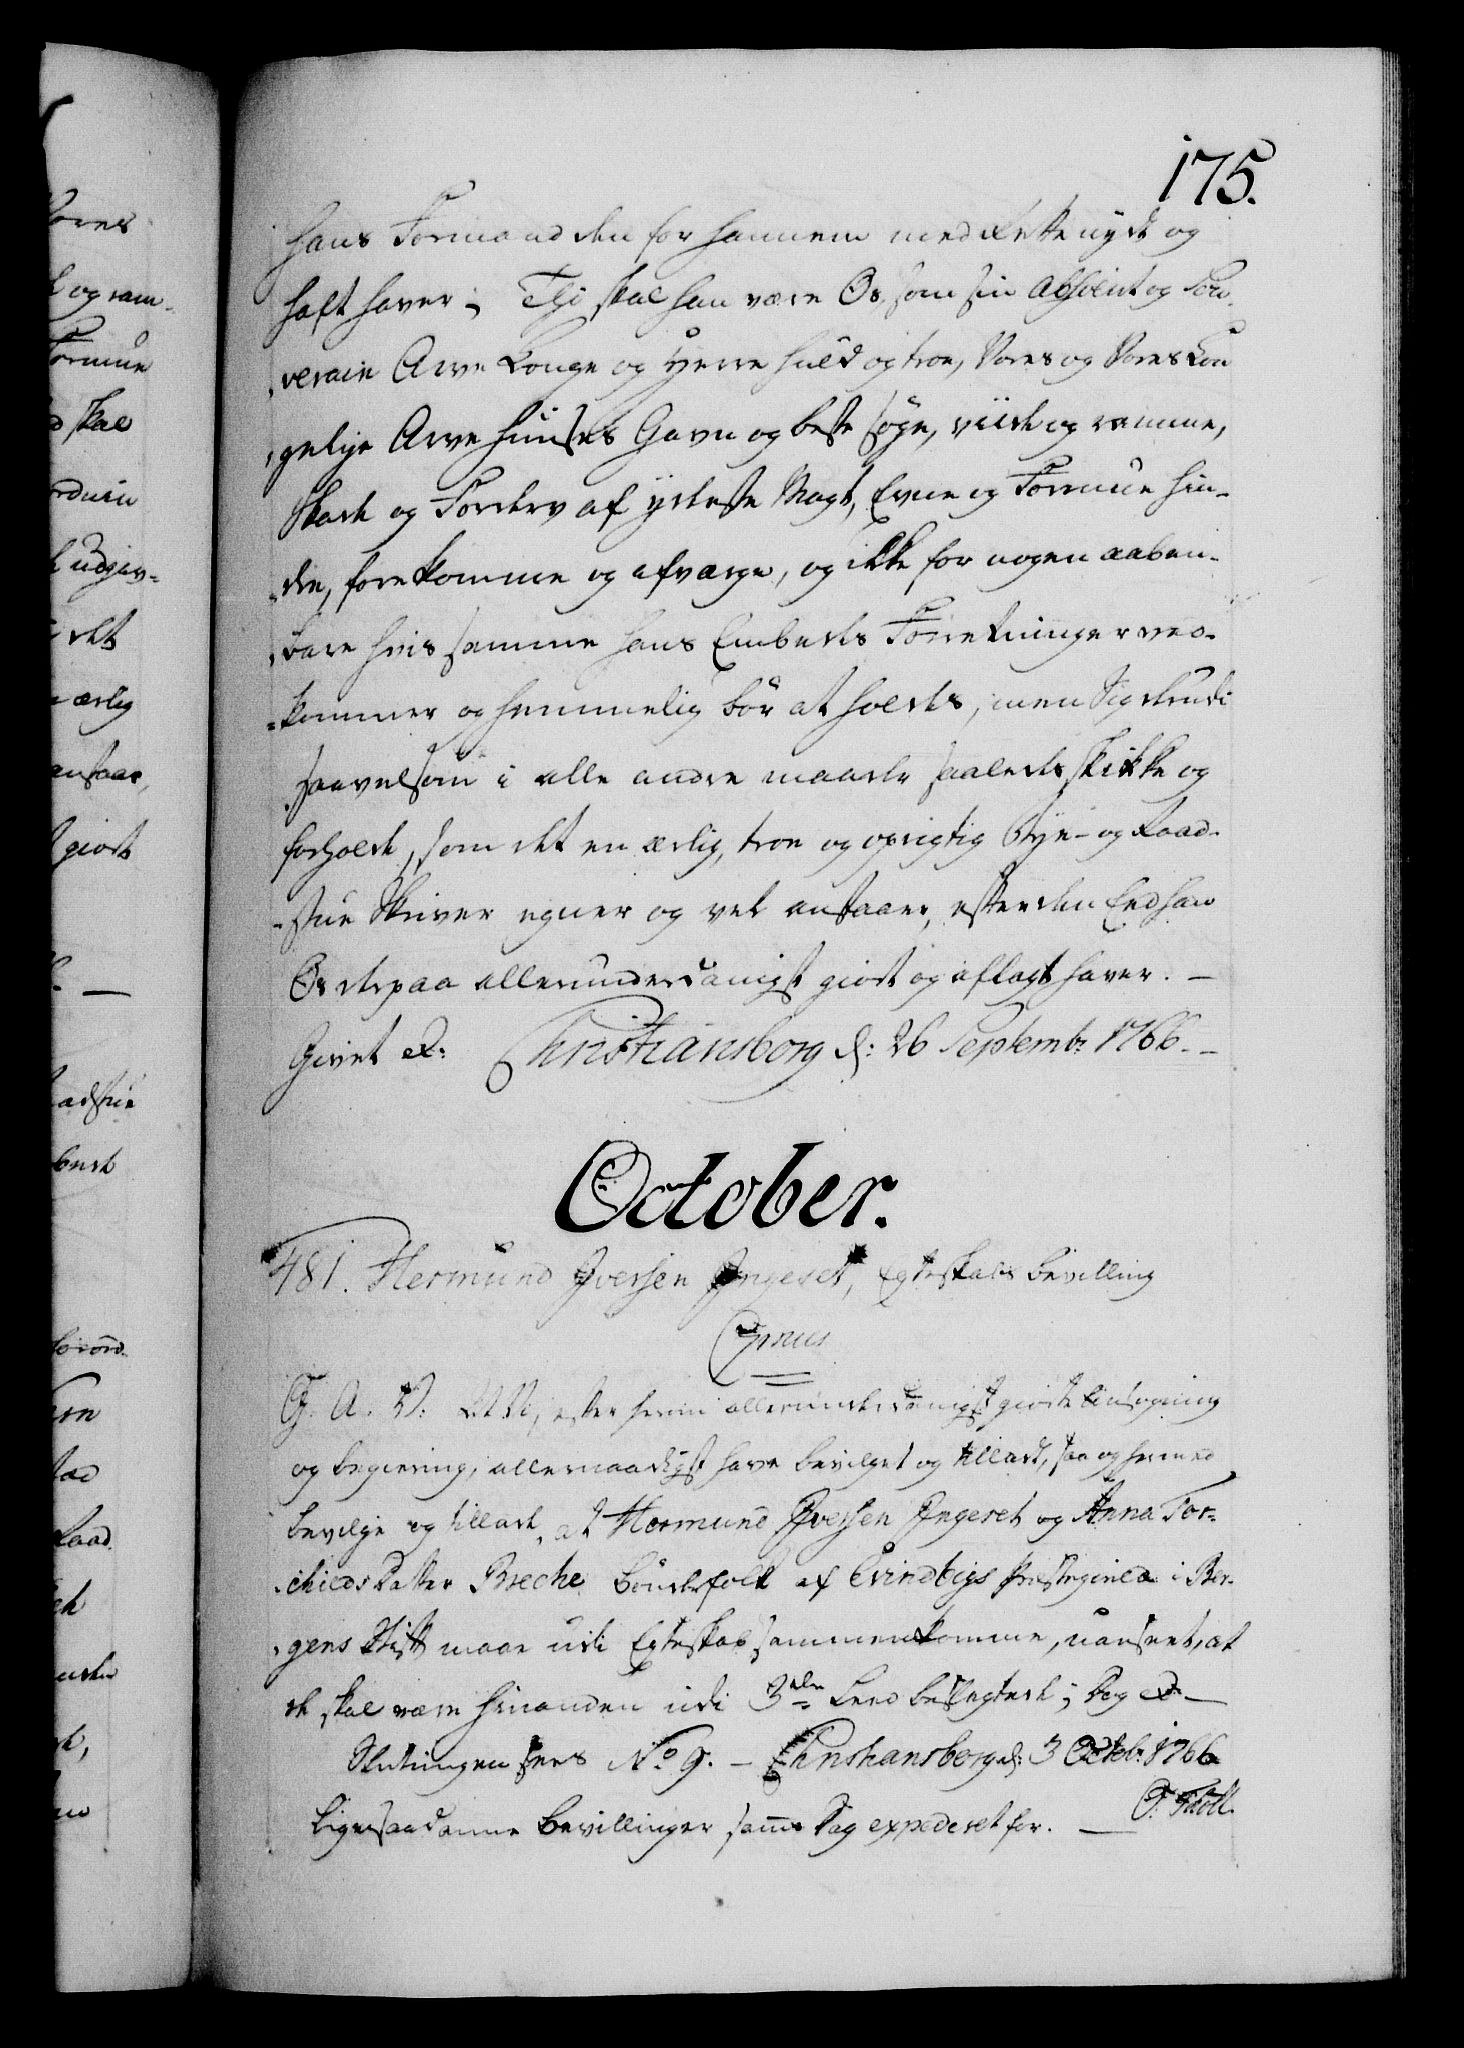 175.
hans Formand den for hannem med Rette nydt og
haft haver; Thi skal han være Os, som sin Absolut og Sou-
verain Arve Konge og Herre huld og troe, Vores og Vores Kon
gelige Arve Huuses Gavn og beste søge, viide og ramme,
Skade og Forderv af yderste Magt, Evne og Formue hin-
dre, forekomme og afværge, og ikke for nogen aaben-
bare hvis samme hans Embeds Forretninger ved-
kommer og hemmelig bør at holdes, men sig derudi
saavelsom i alle andre maader saaledes skikke og
forholde, som det en ærlig, troe og oprigtig Bye- og Raad-
stue Skriver egner og vel anstaaer, efter den Eed han
Os derpaa allerunderdanigst giort og aflagt haver. —
Givet &c: Christiansborg d: 26 Septembr 1766. —
October.
481. Hermund Iversen Ingeset, Egteskabs Bevilling
Gratis
C. A. V. at Vi, efter herom allerunderdanigst giorte Ansøgning
og begiering, allernaadigst have bevilget og tilladt, saa og hermed
bevilge og tillade, at Hermund Iversen Ingeset og Anna Tor-
childsdatter Breche Bøndefolk af Evindvigs Præstegield i Ber-
gens Stift maae udi Egteskab sammenkomme, uanseet, at
de skal være hinanden udi 3die Leed beslegtede; Dog &c —
Slutningen sees No 9. — Christiansborg d: 3 Octobr 1766
O. Thott.
Ligesaadanne Bevillinger samme Dag expederet for. —